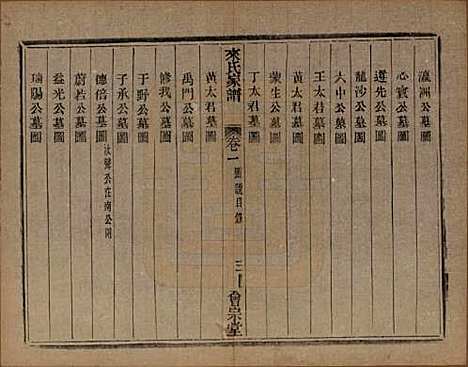 瀛洲公墓圖
心寰公墓圖
遵先公墓圖
龍沙公墓圖
大中公墓圖
王太君墓圖
黃太君墓圖
蒙生公墓圖
丁太君墓圖
來氏家譜
卷一
圖
目錄
三
會宗堂
黃太君墓圖
禹門公墓圖
修我公墓圖
于野公墓圖
子承公墓圖
德倍公墓圖
公在南公
公墓圖
益光公墓圖
瑞陽公墓圖